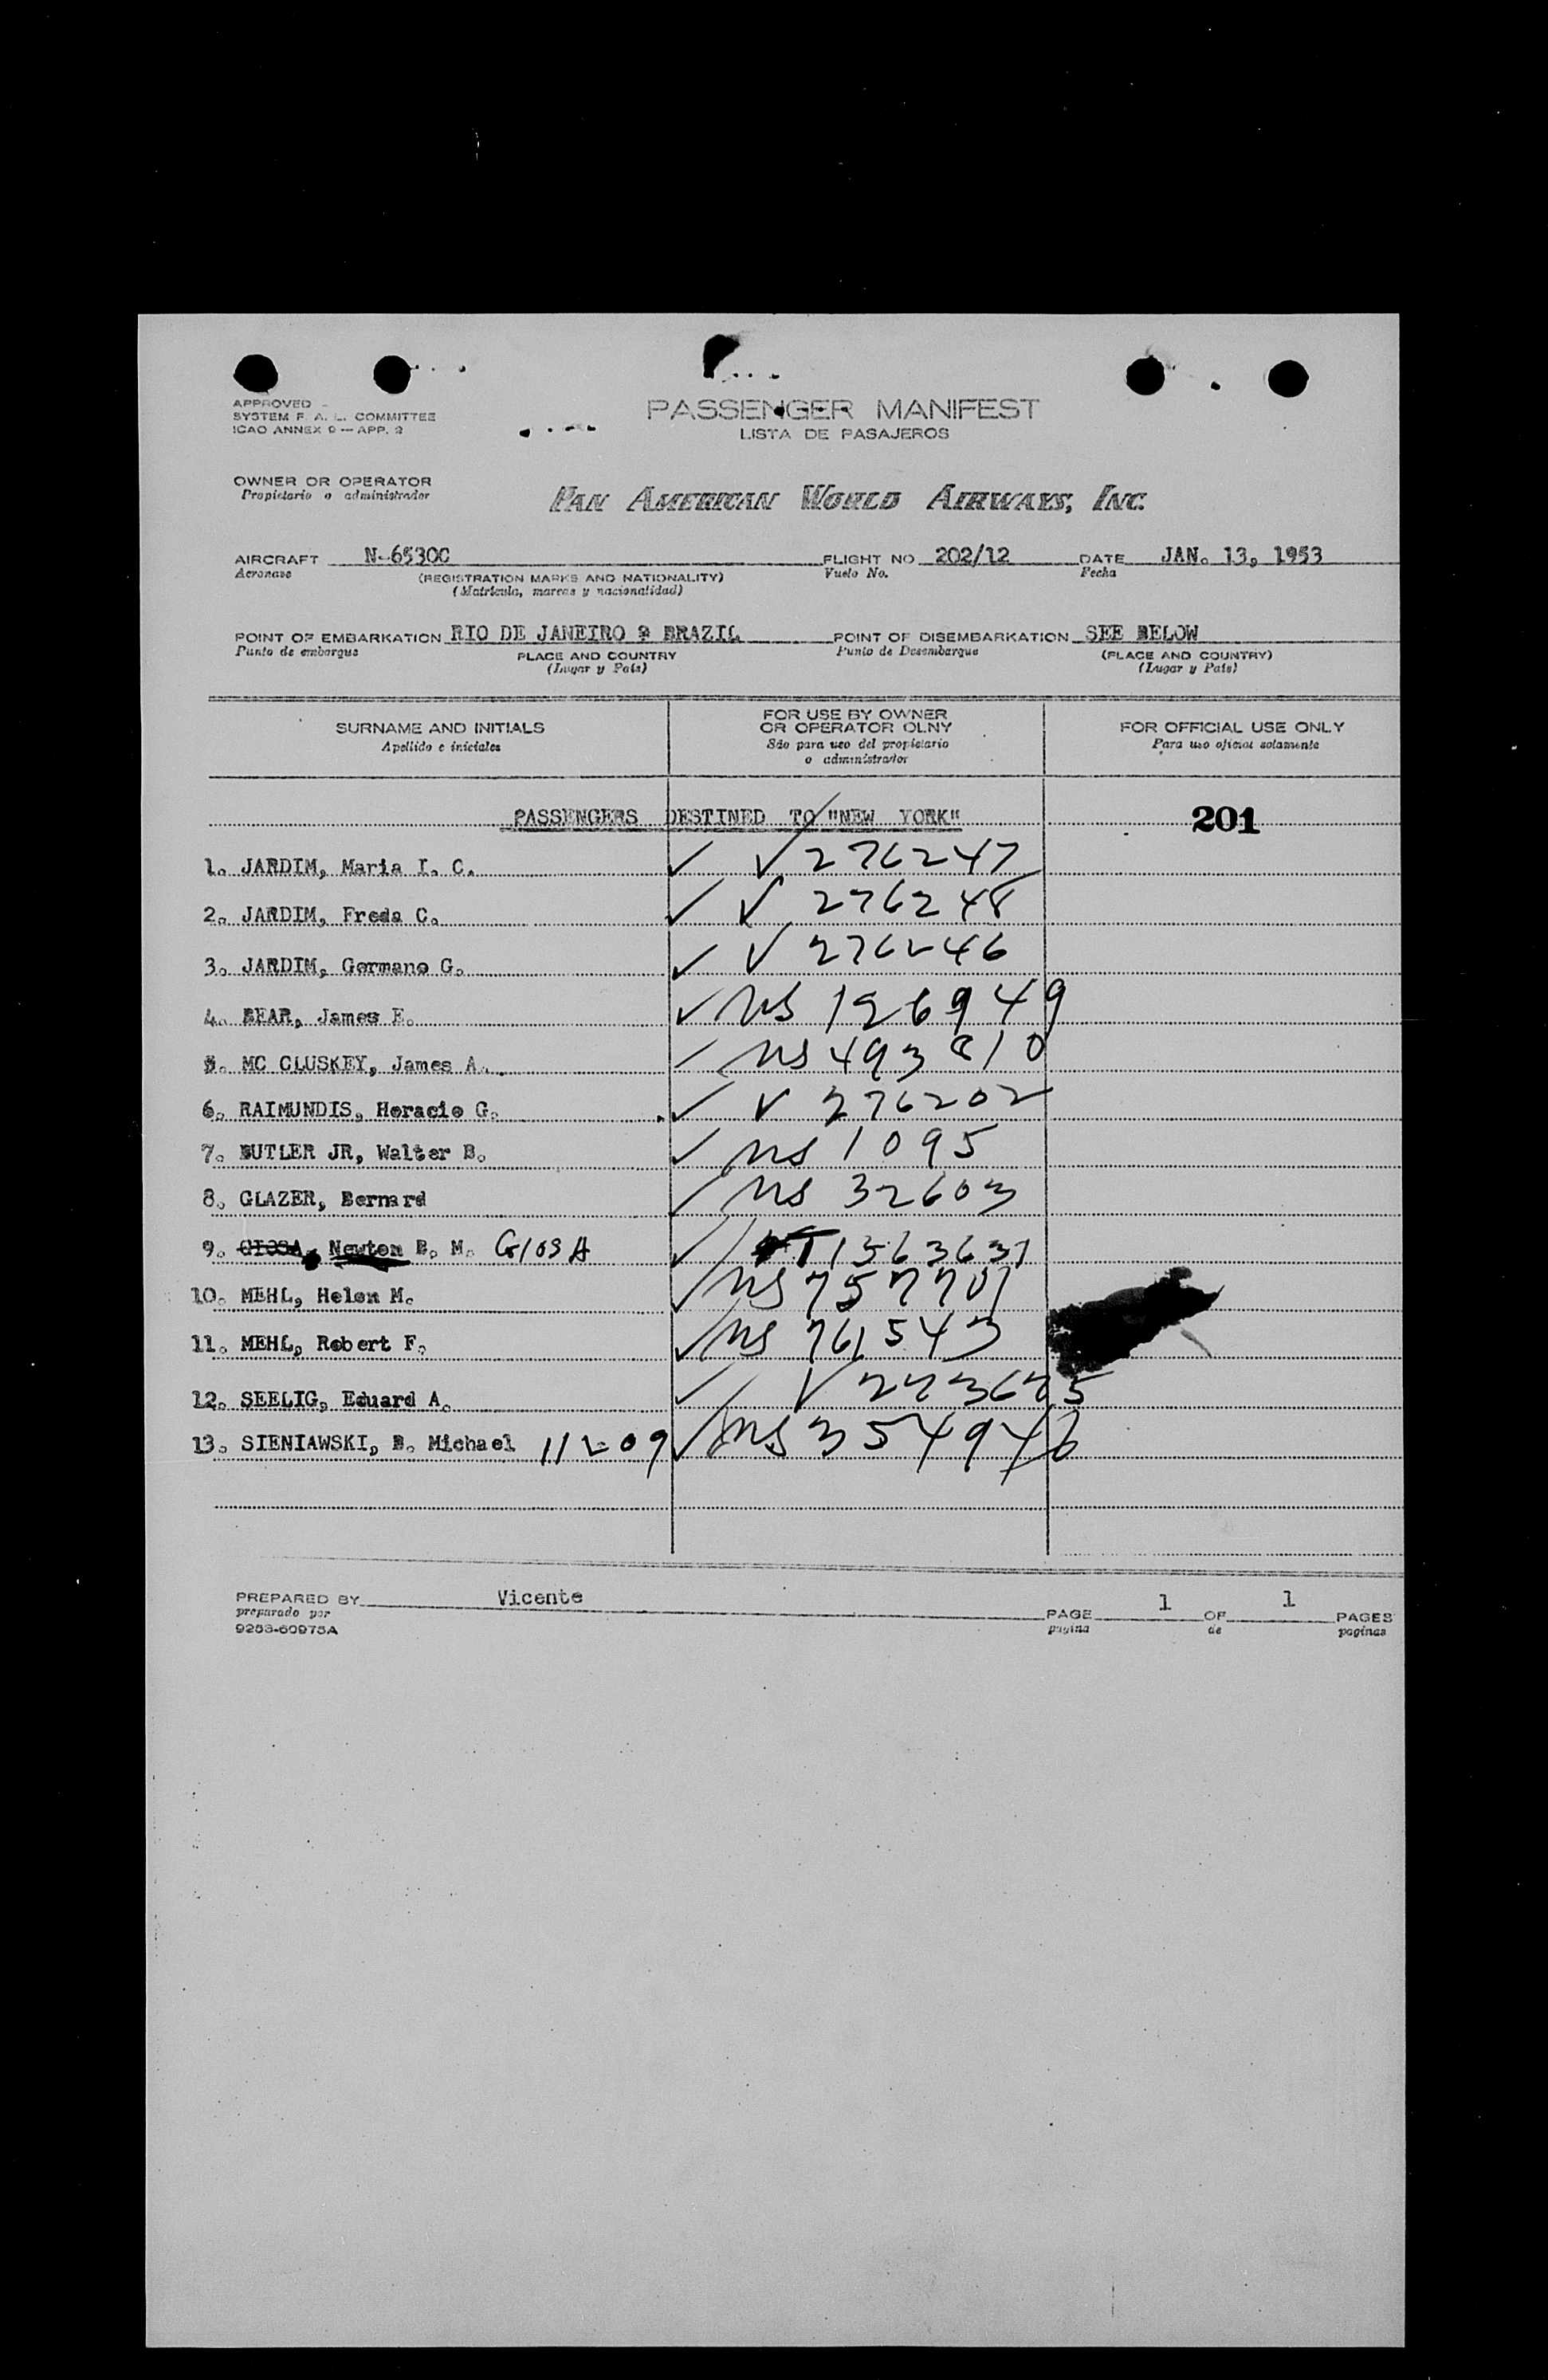 APPROVED
SYSTEM F. A. L. COMMITTEE
ICAO ANNEX 9 — APP. 2
PASSENGER MANIFEST
LISTA DE PASAJEROS
OWNER OR OPERATOR
Propietario o administrador
PAN AMERICAN WORLD AIRWAYS, INC.
AIRCRAFT N-6530C FLIGHT NO. 202/12 DATE JAN. 13, 1953
Aeronave (REGISTRATION MARKS AND NATIONALITY) Vuelo No. Fecha
(Matricula, marcas y nacionalidad)
POINT OF EMBARKATION RIO DE JANEIRO BRAZIL POINT OF DISEMBARKATION SEE BELOW
Punto de embarque PLACE AND COUNTRY Punto de Desembarque (PLACE AND COUNTRY)
(Lugar y Pais) (Lugar y Pais)
SURNAME AND INITIALS FOR USE BY OWNER OR OPERATOR OLNY FOR OFFICIAL USE ONLY
Apellido e iniciales São para uso del propietario o administrador Para uso oficial solamente
PASSENGERS DESTINED TO "NEW YORK" 201
1. JARDIM, Maria I. C. ✓ V 276247
2. JARDIM, Freda C. ✓ V 276248
3. JARDIM, Germano G. ✓ V 276246
4. BEAR, James E. ✓ US 126949
5. MC CLUSKEY, James A. ✓ US 493810
6. RAIMUNDIS, Horacio G. ✓ V 276202
7. BUTLER JR, Walter B. ✓ US 1095
8. GLAZER, Bernard ✓ US 32603
9. GIOSA, Newton B. M. GIOSA ✓ T1563637
10. MEHL, Helen M. ✓ US 757701
11. MEHL, Robert F. ✓ US 761543
12. SEELIG, Eduard A. ✓ V
13. SIENIAWSKI, B. Michael 11209 ✓ US 354946
PREPARED BY Vicente PAGE 1 OF 1 PAGES
preparado por pagina de paginas
9253-60975A